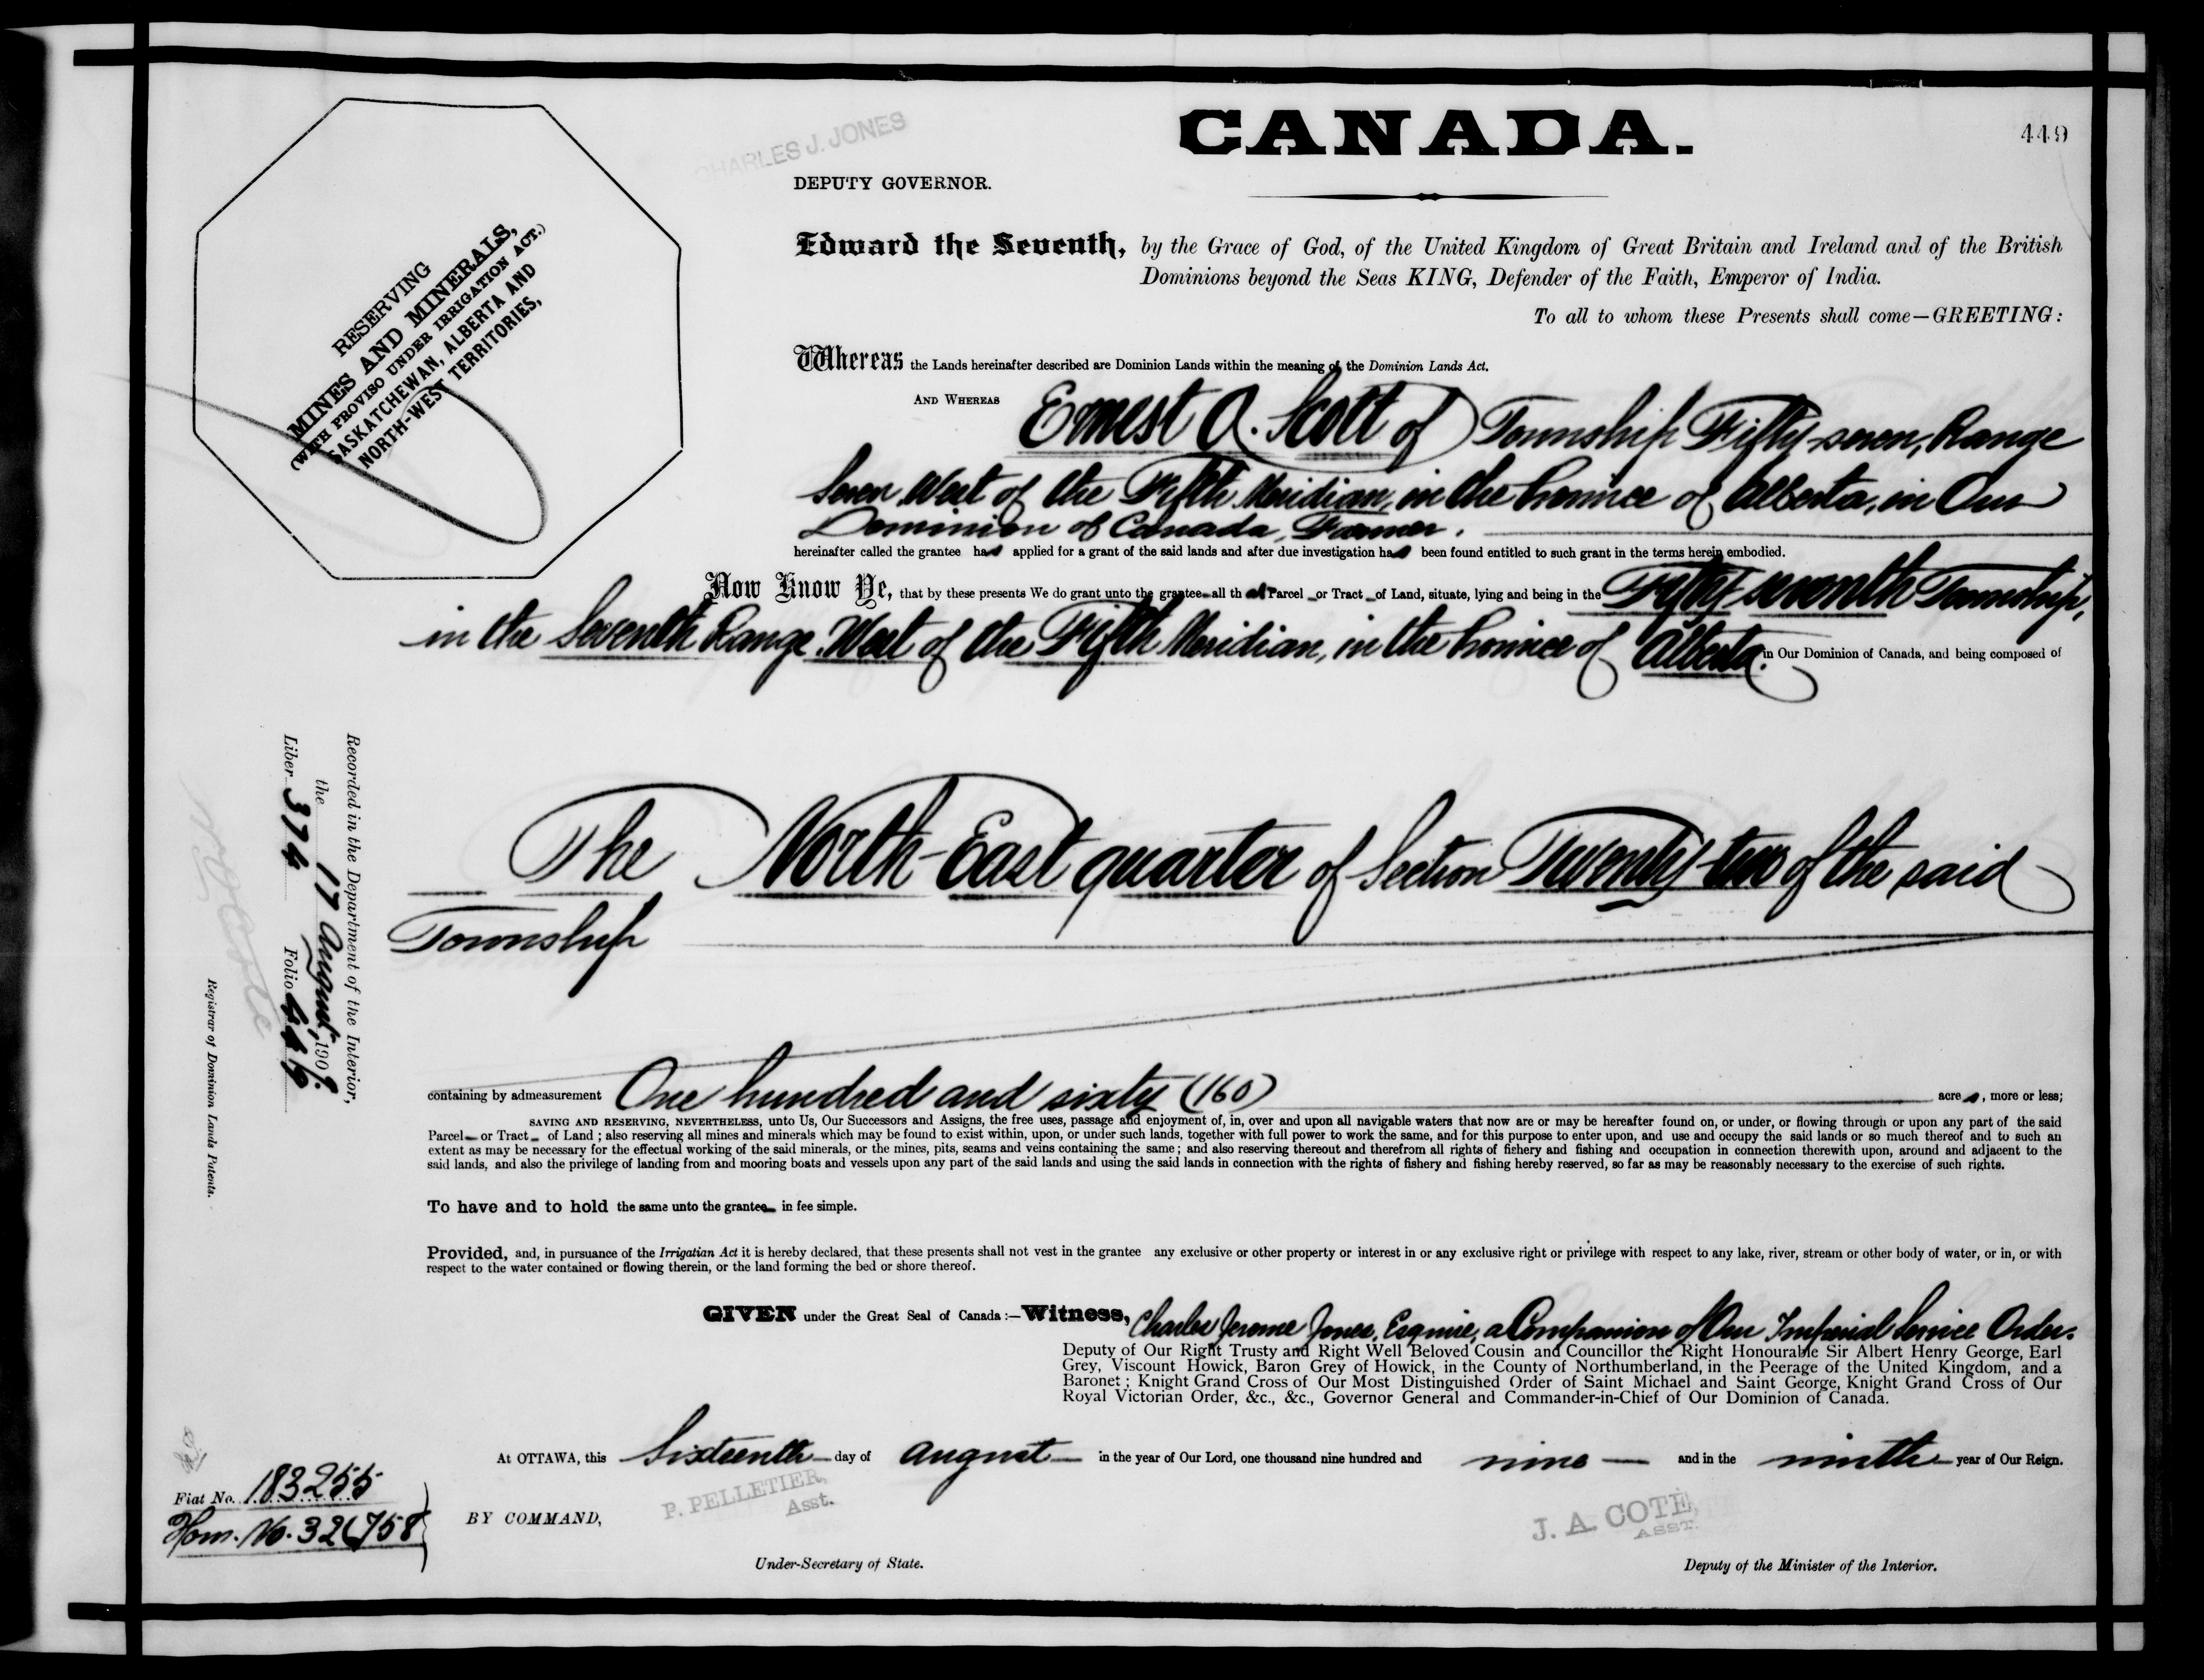 CANADA.
449
CHARLES J. JONES
DEPUTY GOVERNOR.
RESERVING
MINES AND MINERALS,
(WITH PROVISO UNDER IRRIGATION ACT.)
SASKATCHEWAN, ALBERTA AND
NORTH-WEST TERRITORIES,
Edward the Seventh, by the Grace of God, of the United Kingdom of Great Britain and Ireland and of the British
Dominions beyond the Seas KING, Defender of the Faith, Emperor of India.
To all to whom these Presents shall come—GREETING:
Whereas the Lands hereinafter described are Dominion Lands within the meaning of the Dominion Lands Act.
AND WHEREAS Ernest A. Scott of Township Fifty-seven, Range
Seven West of the Fifth Meridian, in the Province of Alberta, in Our
Dominion of Canada, Farmer.
hereinafter called the grantee has applied for a grant of the said lands and after due investigation has been found entitled to such grant in the terms herein embodied.
Now Know Ye, that by these presents We do grant unto the grantee all that Parcel or Tract of Land, situate, lying and being in the Fifty-seventh Township,
in the Seventh Range, West of the Fifth Meridian, in the Province of Alberta. in Our Dominion of Canada, and being composed of
The North-East quarter of Section Twenty-two of the said
Township
Recorded in the Department of the Interior,
the 17 August, 1909.
Liber 374 Folio 449
Registrar of Dominion Lands Patents.
containing by admeasurement One hundred and sixty (160) acres, more or less;
SAVING AND RESERVING, NEVERTHELESS, unto Us, Our Successors and Assigns, the free uses, passage and enjoyment of, in, over and upon all navigable waters that now are or may be hereafter found on, or under, or flowing through or upon any part of the said
Parcel or Tract of Land ; also reserving all mines and minerals which may be found to exist within, upon, or under such lands, together with full power to work the same, and for this purpose to enter upon, and use and occupy the said lands or so much thereof and to such an
extent as may be necessary for the effectual working of the said minerals, or the mines, pits, seams and veins containing the same ; and also reserving thereout and therefrom all rights of fishery and fishing and occupation in connection therewith upon, around and adjacent to the
said lands, and also the privilege of landing from and mooring boats and vessels upon any part of the said lands and using the said lands in connection with the rights of fishery and fishing hereby reserved, so far as may be reasonably necessary to the exercise of such rights.
To have and to hold the same unto the grantee in fee simple.
Provided, and, in pursuance of the Irrigatian Act it is hereby declared, that these presents shall not vest in the grantee any exclusive or other property or interest in or any exclusive right or privilege with respect to any lake, river, stream or other body of water, or in, or with
respect to the water contained or flowing therein, or the land forming the bed or shore thereof.
GIVEN under the Great Seal of Canada :—Witness, Charles Jerome Jones, Esquire, a Companion of Our Imperial Service Order.
Deputy of Our Right Trusty and Right Well Beloved Cousin and Councillor the Right Honourable Sir Albert Henry George, Earl
Grey, Viscount Howick, Baron Grey of Howick, in the County of Northumberland, in the Peerage of the United Kingdom, and a
Baronet ; Knight Grand Cross of Our Most Distinguished Order of Saint Michael and Saint George, Knight Grand Cross of Our
Royal Victorian Order, &c., &c., Governor General and Commander-in-Chief of Our Dominion of Canada.
At OTTAWA, this Sixteenth day of August in the year of Our Lord, one thousand nine hundred and nine and in the ninth year of Our Reign.
Fiat No. 183255
Hom. No. 326758
BY COMMAND,
P. PELLETIER,
Asst.
Under-Secretary of State.
J. A. COTÉ,
ASST.
Deputy of the Minister of the Interior.